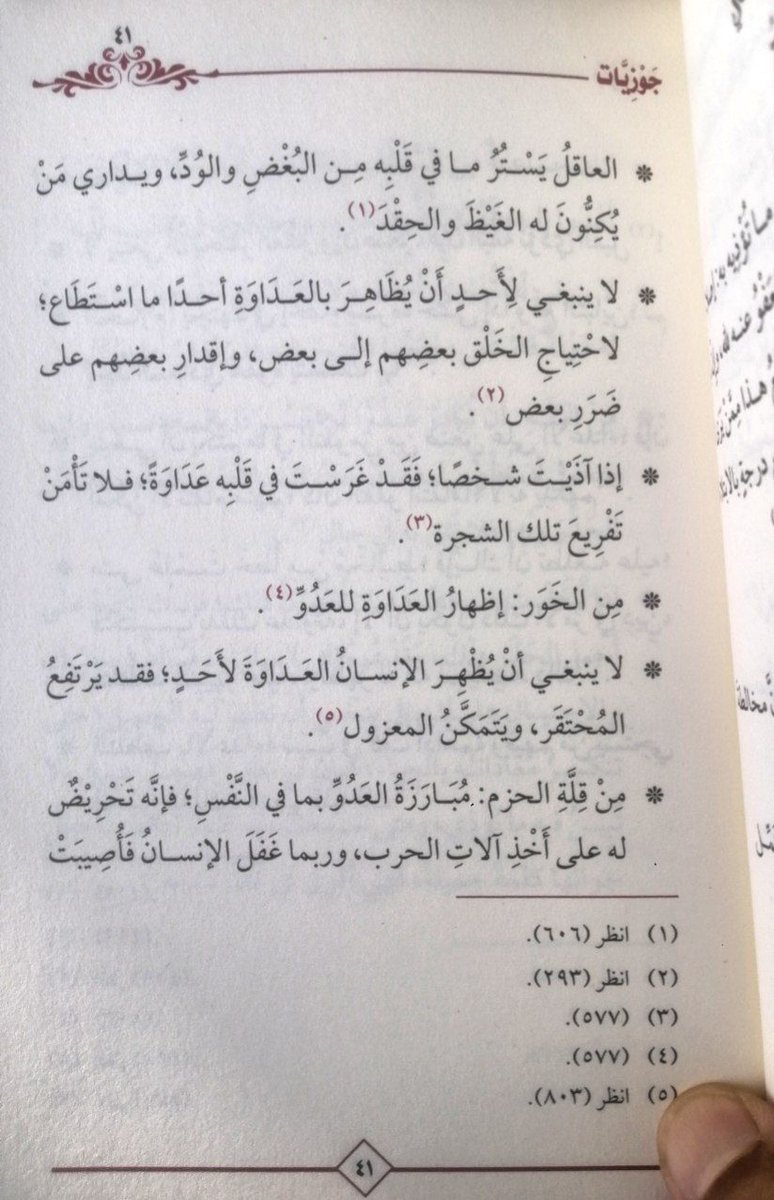 ٤١
جَوْزِيَّات
* العاقلُ يَسْتُرُ ما في قَلْبِه مِن البُغْضِ والوُدِّ، ويداري مَنْ
يُكِنُّونَ له الغَيْظَ والحِقْدَ(١).
* لا ينبغي لِأَحدٍ أَنْ يُظَاهِرَ بالعَدَاوَةِ أحدًا ما اسْتَطَاع؛
لاحْتِياجِ الخَلْق بعضِهم إلى بعض، وإقدارِ بعضِهم على
ضَرَرِ بعض(٢).
* إذا آذَيْتَ شخصًا؛ فَقَدْ غَرَسْتَ في قَلْبِه عَدَاوَةً؛ فلا تَأْمَنْ
تَفْرِيعَ تلك الشجرة(٣).
* مِن الخَوَر: إظهارُ العَدَاوَةِ للعَدُوِّ(٤).
* لا ينبغي أنْ يُظْهِرَ الإنسانُ العَدَاوَةَ لأَحَدٍ؛ فقد يَرْتَفِعُ
المُحْتَقَر، ويَتَمَكَّنُ المعزول(٥).
* مِنْ قِلَّةِ الحزم: مُبَارَزَةُ العَدُوِّ بما في النَّفْسِ؛ فإنَّه تَحْرِيْضٌ
له على أَخْذِ آلاتِ الحرب، وربما غَفَلَ الإنسانُ فَأُصِيبَتْ
(١) انظر (٦٠٦).
(٢) انظر (٢٩٣).
(٣) (٥٧٧).
(٤) (٥٧٧).
(٥) انظر (٨٠٣).
٤١